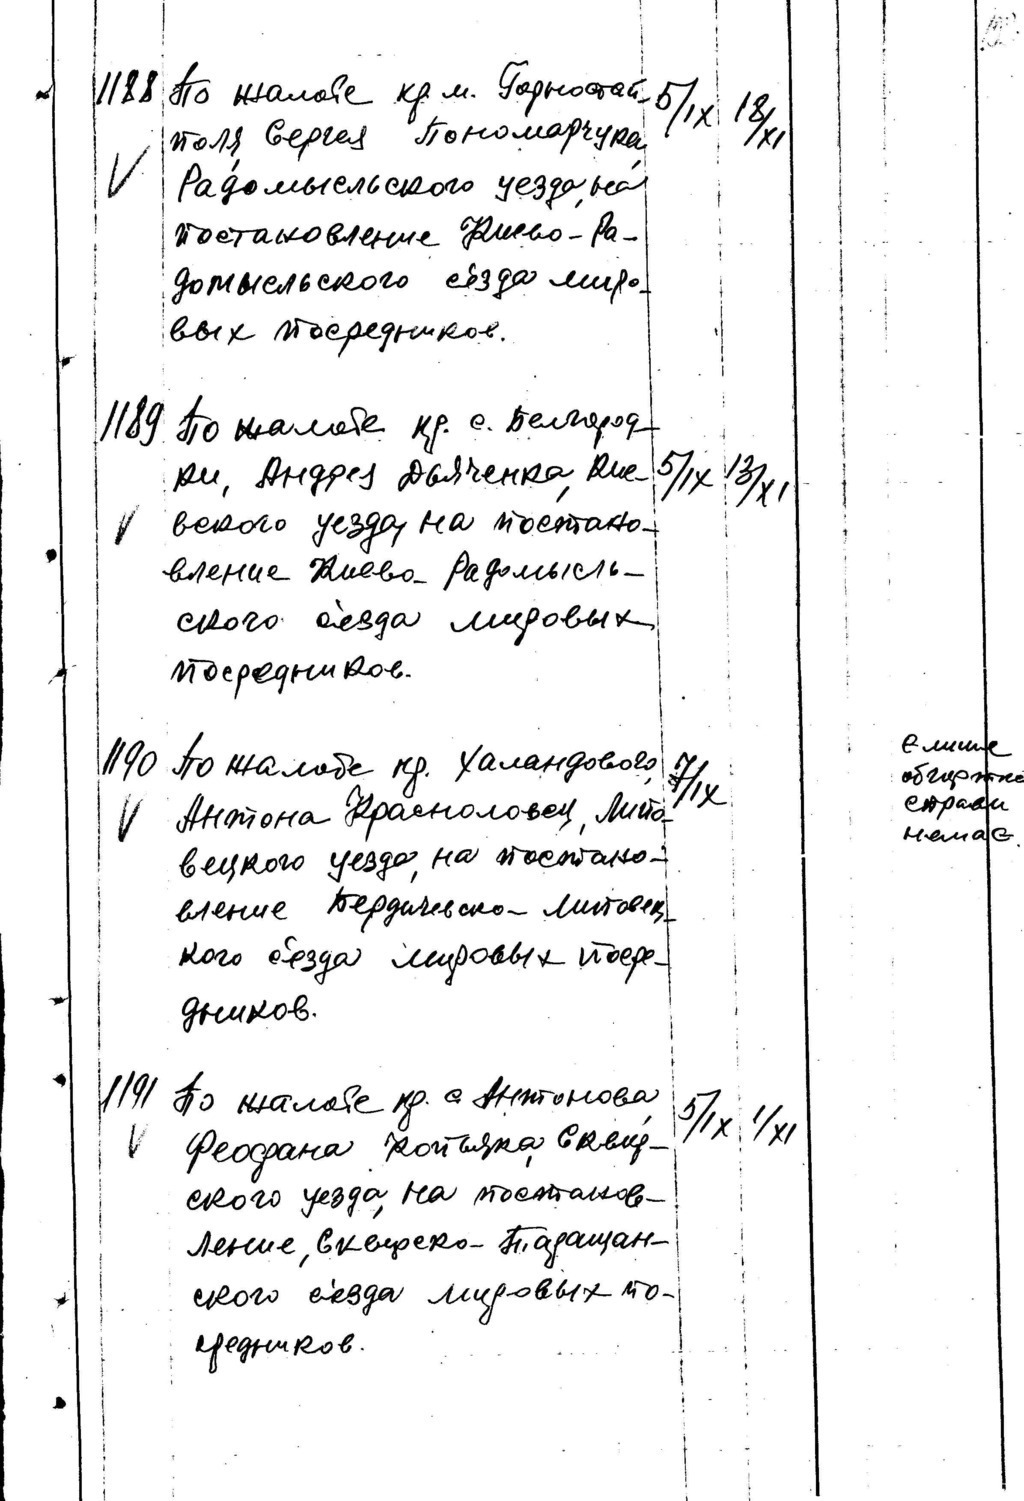 1188 По жалобе кр. м. Горностай- 5/IX 18/XI
поля, Сергея Пономарчука,
Радомысльского уезда, на
постановление Киево-Ра-
домысльского съезда миро-
вых посредников.
1189 По жалобе кр. с. Белгород-
ки, Андрея Дьяченка, Кие- 5/IX 13/XI
вского уезда, на постано-
вление Киево-Радомысль-
ского съезда мировых
посредников.
1190 По жалобе кр. Халандового, 7/IX
Антона Краснოловец, Липо-
вецкого уезда, на постано-
вление Бердичевско-Липовец-
кого съезда мировых посре-
дников.
Є лише
обгортка
справи
немає.
1191 По жалобе кр. с Антонова, 5/IX 1/XI
Феофана Копьяка, Сквир-
ского уезда, на постанов-
ление, Сквирско-Таращан-
ского съезда мировых по-
средников.